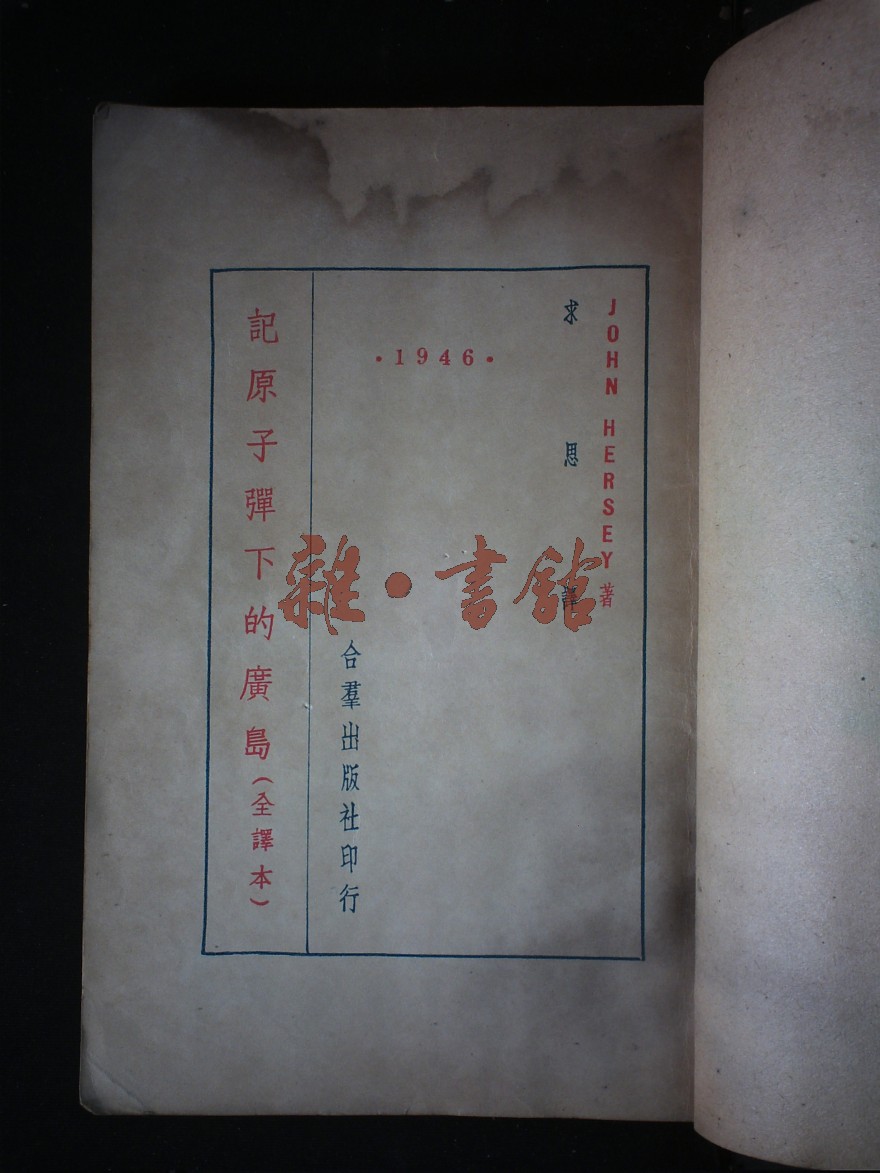 JOHN HERSEY 著
求思譯
·1946·
合羣出版社印行
記原子彈下的廣島(全譯本)
雜·書館